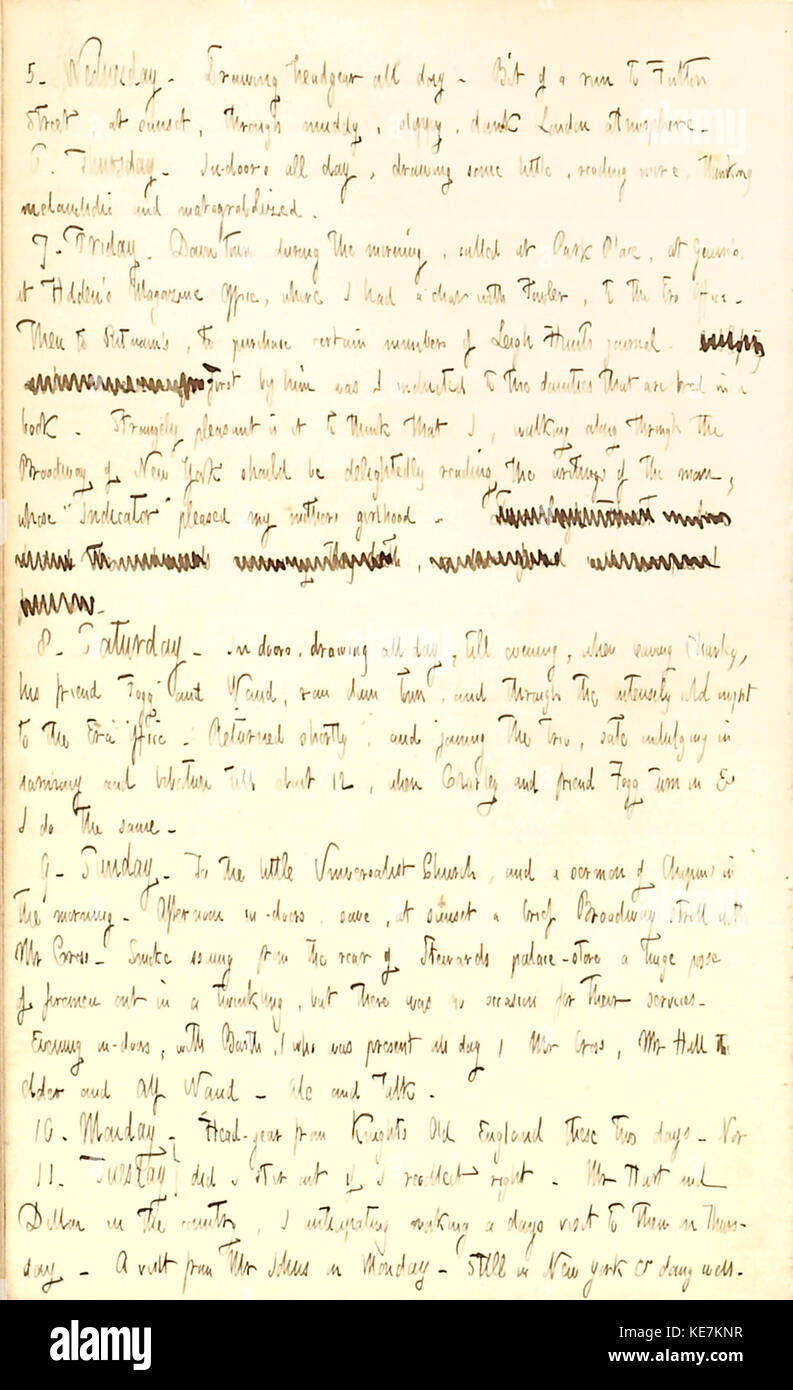 5. Wednesday. Drawing headgear all day. Bit of a run to Fulton
Street at sunset, through muddy, slushy, dank London atmosphere.
6. Thursday. In-doors all day, drawing some little, reading more, thinking
melancholic and matagrabolized.
7. Friday. Down town during the morning, called at Park Place, at Genin's,
at Holden's Magazine Office, where I had a chat with Fowler, to the Era Office.
Then to Putnam's, to purchase certain numbers of Leigh Hunts journal.
First by him was I inducted to the dainties that are bred in a
book. Strangely pleasant is it to think that I, walking along through the
Broadway of New York should be delightedly reading the writings of the man,
whose "Indicator" pleased my mothers girlhood.
8. Saturday. In doors, drawing all day, till evening, when leaving Charley,
his friend Fogg and Waud, ran down town, and through the intensely cold night
to the Era Office. Returned shortly, and joining the trio, sate indulging in
and till about 12, when Charley and friend Fogg turn in &
I do the same.
9. Sunday. To the little Universalist Church, and a sermon of Chapins in
the morning. Afternoon in-doors, save, at sunset a brief Broadway stroll with
Mr Cross. Smoke issuing from the rear of Stewards palace-store a huge posse
of firemen out in a twinkling, but there was no occasion for their services.
Evening in-doors, with Barth, (who was present all day) Mr Cross, Mr Hall the
elder and Alf Waud. Ale and Talk.
10. Monday. Head-gear from Knights Old England these two days. Nor
11. Tuesday did I stir out if I recollect right. Mr Hart and
Dillon in the country, I anticipating making a days visit to them on Thurs-
day. A visit from Mr Johns on Monday. Still in New York & doing well.
alamy
Image ID: KE7KNR
www.alamy.com